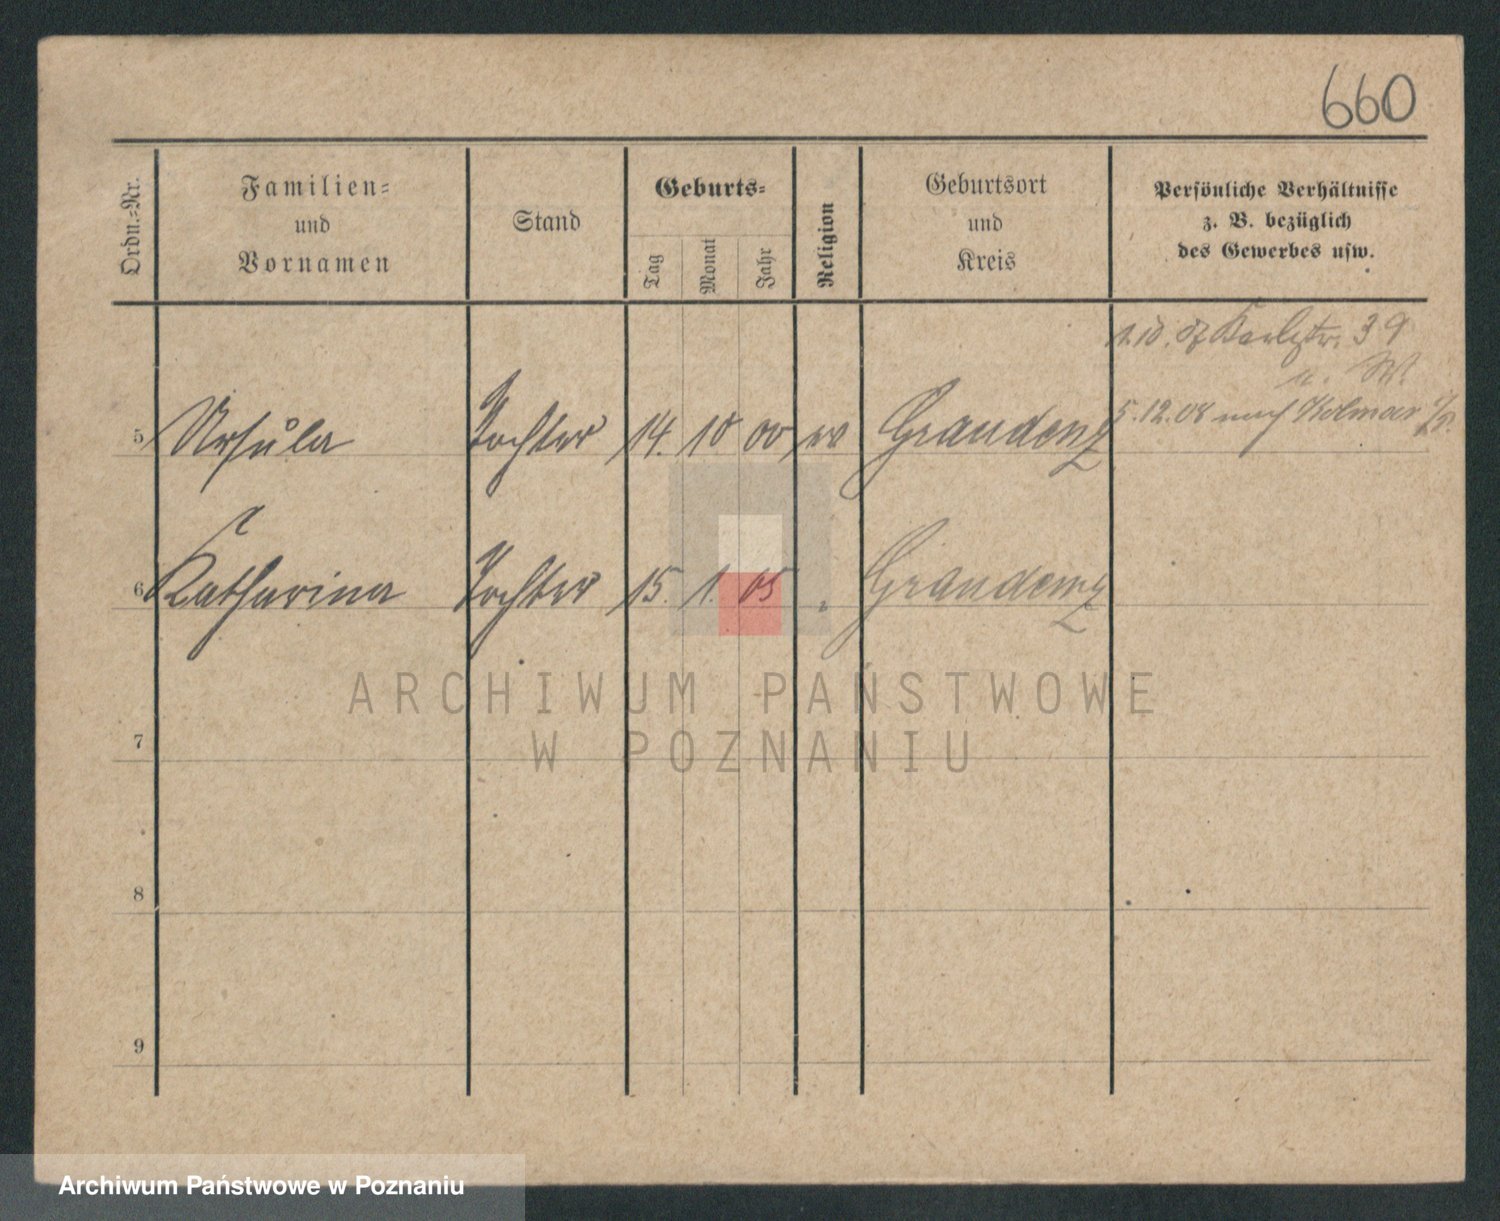 660
Ordn.-Nr.
Familien-
und
Vornamen
Stand
Geburts-
Tag
Monat
Jahr
Religion
Geburtsort
und
Kreis
Persönliche Verhältnisse
z. B. bezüglich
des Gewerbes usw.
39
5 Ursula Tochter 14. 10 00 ev Graudenz 5.12.08 nach Kolmar
6 Katharina Tochter 15. 1. 05 " Graudenz
7
8
9
ARCHIWUM PAŃSTWOWE
W POZNANIU
Archiwum Państwowe w Poznaniu